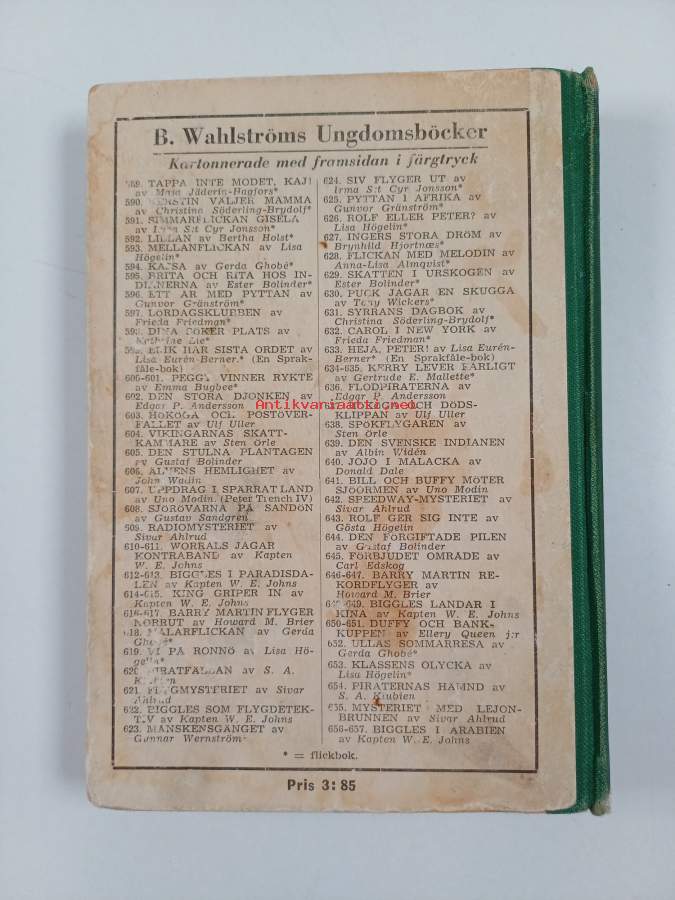 B. Wahlströms Ungdomsböcker
Kartonnerade med framsidan i färgtryck
589. TAPPA INTE MODET, KAJ!
av Maja Jäderin-Hagfors*
590. KERSTIN VÄLJER MAMMA
av Christina Söderling-Brydolf*
591. SIMMARFLICKAN GISELA
av Irma S:t Cyr Jonsson*
592. LILLAN av Bertha Holst*
593. MELLANFLICKAN av Lisa
Högelin*
594. KAJSA av Gerda Ghobé*
595. BRITA OCH RITA HOS IN-
DIANERNA av Ester Bolinder*
596. ETT ÅR MED PYTTAN av
Gunvor Gränström*
597. LÖRDAGSKLUBBEN av
Frieda Friedman*
598. DINA SÖKER PLATS av
Lie*
599. ERIK HAR SISTA ORDET av
Lisa Eurén-Berner.* (En Språk-
fåle-bok)
600-601. PEGGY VINNER RYKTE
av Emma Bugbee*
602. DEN STORA DJONKEN av
Edgar P. Andersson
603. HOKOGA OCH POSTÖVER-
FALLET av Ulf Uller
604. VIKINGARNAS SKATT-
KAMMARE av Sten Örle
605. DEN STULNA PLANTAGEN
av Gustaf Bolinder
606. ALPENS HEMLIGHET av
John Wadin
607. UPPDRAG I SPÄRRAT LAND
av Uno Modin. (Peter Trench IV)
608. SJÖRÖVARNA PÅ SANDÖN
av Gustav Sandgren
609. RADIOMYSTERIET av
Sivar Ahlrud
610-611. WORRALS JAGAR
KONTRABAND av Kapten
W. E. Johns
612-613. BIGGLES I PARADISDA-
LEN av Kapten W. E. Johns
614-615. KING GRIPER IN av
Kapten W. E. Johns
616-617. BARRY MARTIN FLYGER
NORRUT av Howard M. Brier
618. MÄLARFLICKAN av Gerda
Ghobé*
619. VI PÅ RONNÖ av Lisa Hö-
gelin*
620. PIRATFÄLLAN av S. A.
621. FLYGMYSTERIET av Sivar
Ahlrud
622. BIGGLES SOM FLYGDETEK-
TIV av Kapten W. E. Johns
623. MÅNSKENSGÄNGET av
Gunnar Wernström
624. SIV FLYGER UT av
Irma S:t Cyr Jonsson*
625. PYTTAN I AFRIKA av
Gunvor Gränström*
626. ROLF ELLER PETER? av
Lisa Högelin*
627. INGERS STORA DRÖM av
Brynhild Hjortnæs*
628. FLICKAN MED MELODIN av
Anna-Lisa Almqvist*
629. SKATTEN I URSKOGEN av
Ester Bolinder*
630. PUCK JAGAR EN SKUGGA
av Tony Wickers*
631. SYRRANS DAGBOK av
Christina Söderling-Brydolf*
632. CAROL I NEW YORK av
Frieda Friedman*
633. HEJA, PETER! av Lisa Eurén-
Berner* (En Språkfåle-bok)
634-635. KERRY LEVER FARLIGT
av Gertrude E. Mallette*
636. FLODPIRATERNA av
Edgar P. Andersson
637. HOKOGA OCH DÖDS-
KLIPPAN av Ulf Uller
638. SPÖKFLYGAREN av
Sten Örle
639. DEN SVENSKE INDIANEN
av Albin Widén
640. JOJO I MALACKA av
Donald Dale
641. BILL OCH BUFFY MÖTER
SJÖORMEN av Uno Modin
642. SPEEDWAY-MYSTERIET av
Sivar Ahlrud
643. ROLF GER SIG INTE av
Gösta Högelin
644. DEN FÖRGIFTADE PILEN
av Gustaf Bolinder
645. FÖRBJUDET OMRÅDE av
Carl Edskog
646-647. BARRY MARTIN RE-
KORDFLYGER av
Howard M. Brier
648-649. BIGGLES LANDAR I
KINA av Kapten W. E. Johns
650-651. DUFFY OCH BANK-
KUPPEN av Ellery Queen j:r
652. ULLAS SOMMARRESA av
Gerda Ghobé*
653. KLASSENS OLYCKA av
Lisa Högelin*
654. PIRATERNAS HÄMND av
S. A. Krubien
655. MYSTERIET MED LEJON-
BRUNNEN av Sivar Ahlrud
656-657. BIGGLES I ARABIEN
av Kapten W. E. Johns
* = flickbok.
Pris 3: 85
Antikvariaatti.net